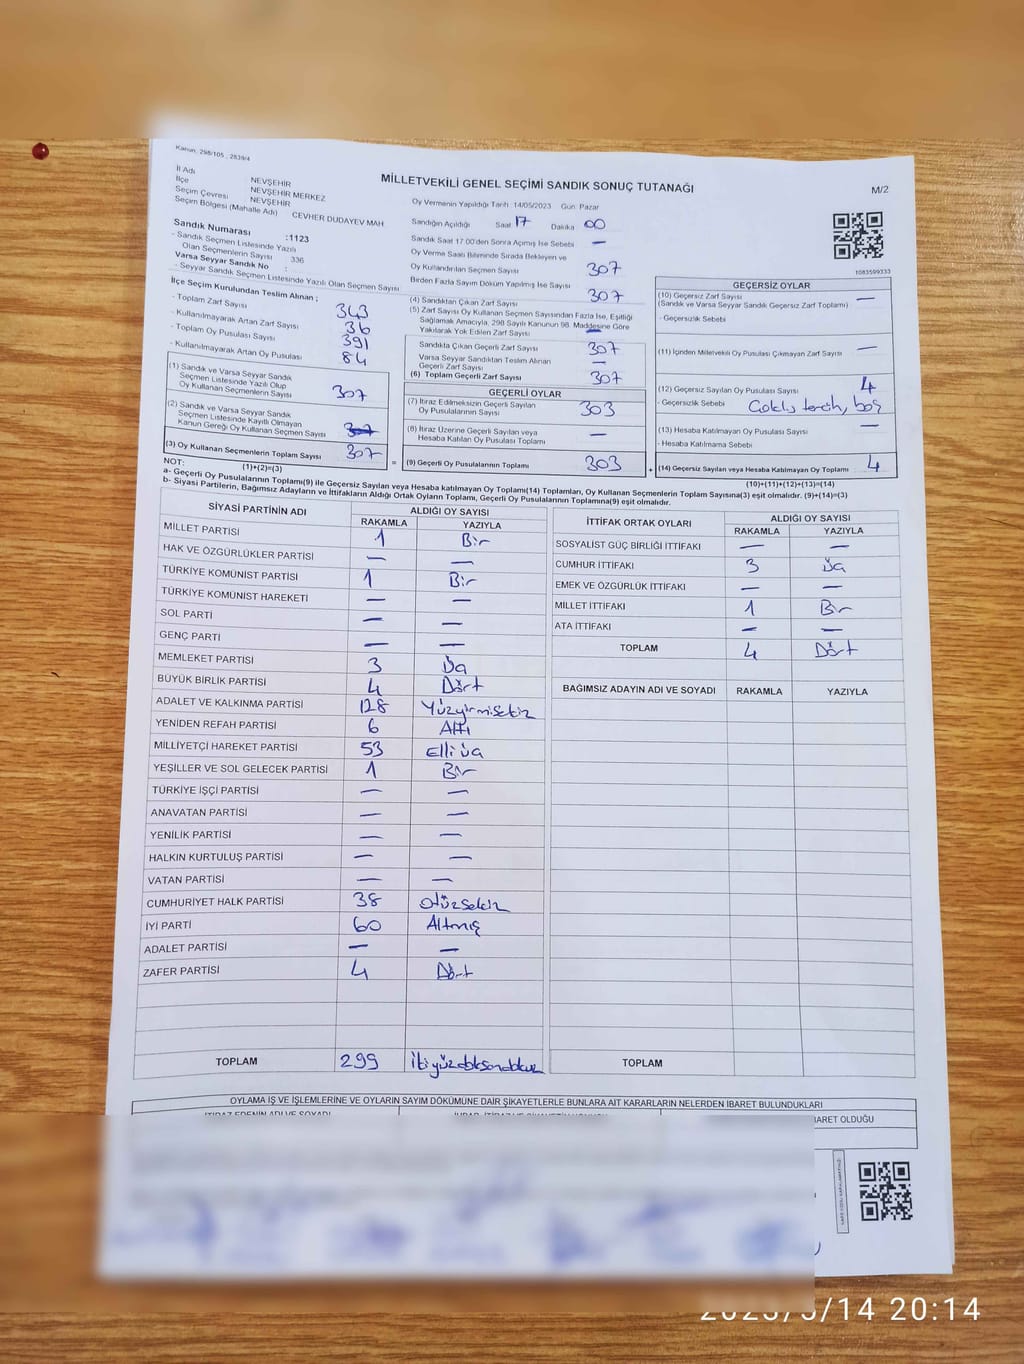 Kanun, 298/105 , 2839/4
MİLLETVEKİLİ GENEL SEÇİMİ SANDIK SONUÇ TUTANAĞI
M/2
İl Adı : NEVŞEHİR
İlçe : NEVŞEHİR MERKEZ
Seçim Çevresi : NEVŞEHİR
Seçim Bölgesi (Mahalle Adı) CEVHER DUDAYEV MAH
Sandık Numarası :1123
- Sandık Seçmen Listesinde Yazılı
Olan Seçmenlerin Sayısı : 336
Varsa Seyyar Sandık No :
- Seyyar Sandık Seçmen Listesinde Yazılı Olan Seçmen Sayısı
İlçe Seçim Kurulundan Teslim Alınan ;
- Toplam Zarf Sayısı 343
- Kullanılmayarak Artan Zarf Sayısı 36
- Toplam Oy Pusulası Sayısı 391
- Kullanılmayarak Artan Oy Pusulası 84
(1) Sandık ve Varsa Seyyar Sandık
Seçmen Listesinde Yazılı Olup
Oy Kullanan Seçmenlerin Sayısı 307
(2) Sandık ve Varsa Seyyar Sandık
Seçmen Listesinde Kayıtlı Olmayan
Kanun Gereği Oy Kullanan Seçmen Sayısı
(3) Oy Kullanan Seçmenlerin Toplam Sayısı 307
(1)+(2)=(3)
Oy Vermenin Yapıldığı Tarih: 14/05/2023 Gün: Pazar
Sandığın Açıldığı Saat 17 Dakika 00
Sandık Saat 17:00'den Sonra Açılmış İse Sebebi —
Oy Verme Saati Bitiminde Sırada Bekleyen ve
Oy Kullandırılan Seçmen Sayısı 307
Birden Fazla Sayım Döküm Yapılmış İse Sayısı
(4) Sandıktan Çıkan Zarf Sayısı 307
(5) Zarf Sayısı Oy Kullanan Seçmen Sayısından Fazla İse, Eşitliği
Sağlamak Amacıyla, 298 Sayılı Kanunun 98. Maddesine Göre
Yakılarak Yok Edilen Zarf Sayısı —
Sandıkta Çıkan Geçerli Zarf Sayısı 307
Varsa Seyyar Sandıktan Teslim Alınan
Geçerli Zarf Sayısı —
(6) Toplam Geçerli Zarf Sayısı 307
GEÇERLİ OYLAR
(7) İtiraz Edilmeksizin Geçerli Sayılan
Oy Pusulalarının Sayısı 303
(8) İtiraz Üzerine Geçerli Sayılan veya
Hesaba Katılan Oy Pusulası Toplamı —
= (9) Geçerli Oy Pusulalarının Toplamı 303
1083599333
GEÇERSİZ OYLAR
(10) Geçersiz Zarf Sayısı —
(Sandık ve Varsa Seyyar Sandık Geçersiz Zarf Toplamı)
- Geçersizlik Sebebi
(11) İçinden Milletvekili Oy Pusulası Çıkmayan Zarf Sayısı —
(12) Geçersiz Sayılan Oy Pusulası Sayısı 4
- Geçersizlik Sebebi tercih, boş
(13) Hesaba Katılmayan Oy Pusulası Sayısı —
- Hesaba Katılmama Sebebi
+ (14) Geçersiz Sayılan veya Hesaba Katılmayan Oy Toplamı 4
(10)+(11)+(12)+(13)=(14)
NOT:
a- Geçerli Oy Pusulalarının Toplamı(9) ile Geçersiz Sayılan veya Hesaba katılmayan Oy Toplamı(14) Toplamları, Oy Kullanan Seçmenlerin Toplam Sayısına(3) eşit olmalıdır. (9)+(14)=(3)
b- Siyasi Partilerin, Bağımsız Adayların ve İttifakların Aldığı Ortak Oyların Toplamı, Geçerli Oy Pusulalarının Toplamına(9) eşit olmalıdır.
SİYASİ PARTİNİN ADI ALDIĞI OY SAYISI
RAKAMLA YAZIYLA
MİLLET PARTİSİ 1 Bir
HAK VE ÖZGÜRLÜKLER PARTİSİ — —
TÜRKİYE KOMÜNİST PARTİSİ 1 Bir
TÜRKİYE KOMÜNİST HAREKETİ — —
SOL PARTİ — —
GENÇ PARTİ — —
MEMLEKET PARTİSİ 3 Üç
BÜYÜK BİRLİK PARTİSİ 4 Dört
ADALET VE KALKINMA PARTİSİ 128 Yüzyirmisekiz
YENİDEN REFAH PARTİSİ 6 Altı
MİLLİYETÇİ HAREKET PARTİSİ 53 Elliüç
YEŞİLLER VE SOL GELECEK PARTİSİ 1 Bir
TÜRKİYE İŞÇİ PARTİSİ — —
ANAVATAN PARTİSİ — —
YENİLİK PARTİSİ — —
HALKIN KURTULUŞ PARTİSİ — —
VATAN PARTİSİ — —
CUMHURİYET HALK PARTİSİ 38 Otuzsekiz
İYİ PARTİ 60 Altmış
ADALET PARTİSİ — —
ZAFER PARTİSİ 4 Dört
TOPLAM 299 İkiyüzdoksandokuz
İTTİFAK ORTAK OYLARI ALDIĞI OY SAYISI
RAKAMLA YAZIYLA
SOSYALİST GÜÇ BİRLİĞİ İTTİFAKI — —
CUMHUR İTTİFAKI 3 Üç
EMEK VE ÖZGÜRLÜK İTTİFAKI — —
MİLLET İTTİFAKI 1 Bir
ATA İTTİFAKI — —
TOPLAM 4 Dört
BAĞIMSIZ ADAYIN ADI VE SOYADI RAKAMLA YAZIYLA
TOPLAM
OYLAMA İŞ VE İŞLEMLERİNE VE OYLARIN SAYIM DÖKÜMÜNE DAİR ŞİKAYETLERLE BUNLARA AİT KARARLARIN NELERDEN İBARET BULUNDUKLARI
İTİRAZ EDENİN ADI VE SOYADI
BARET OLDUĞU
2023/5/14 20:14